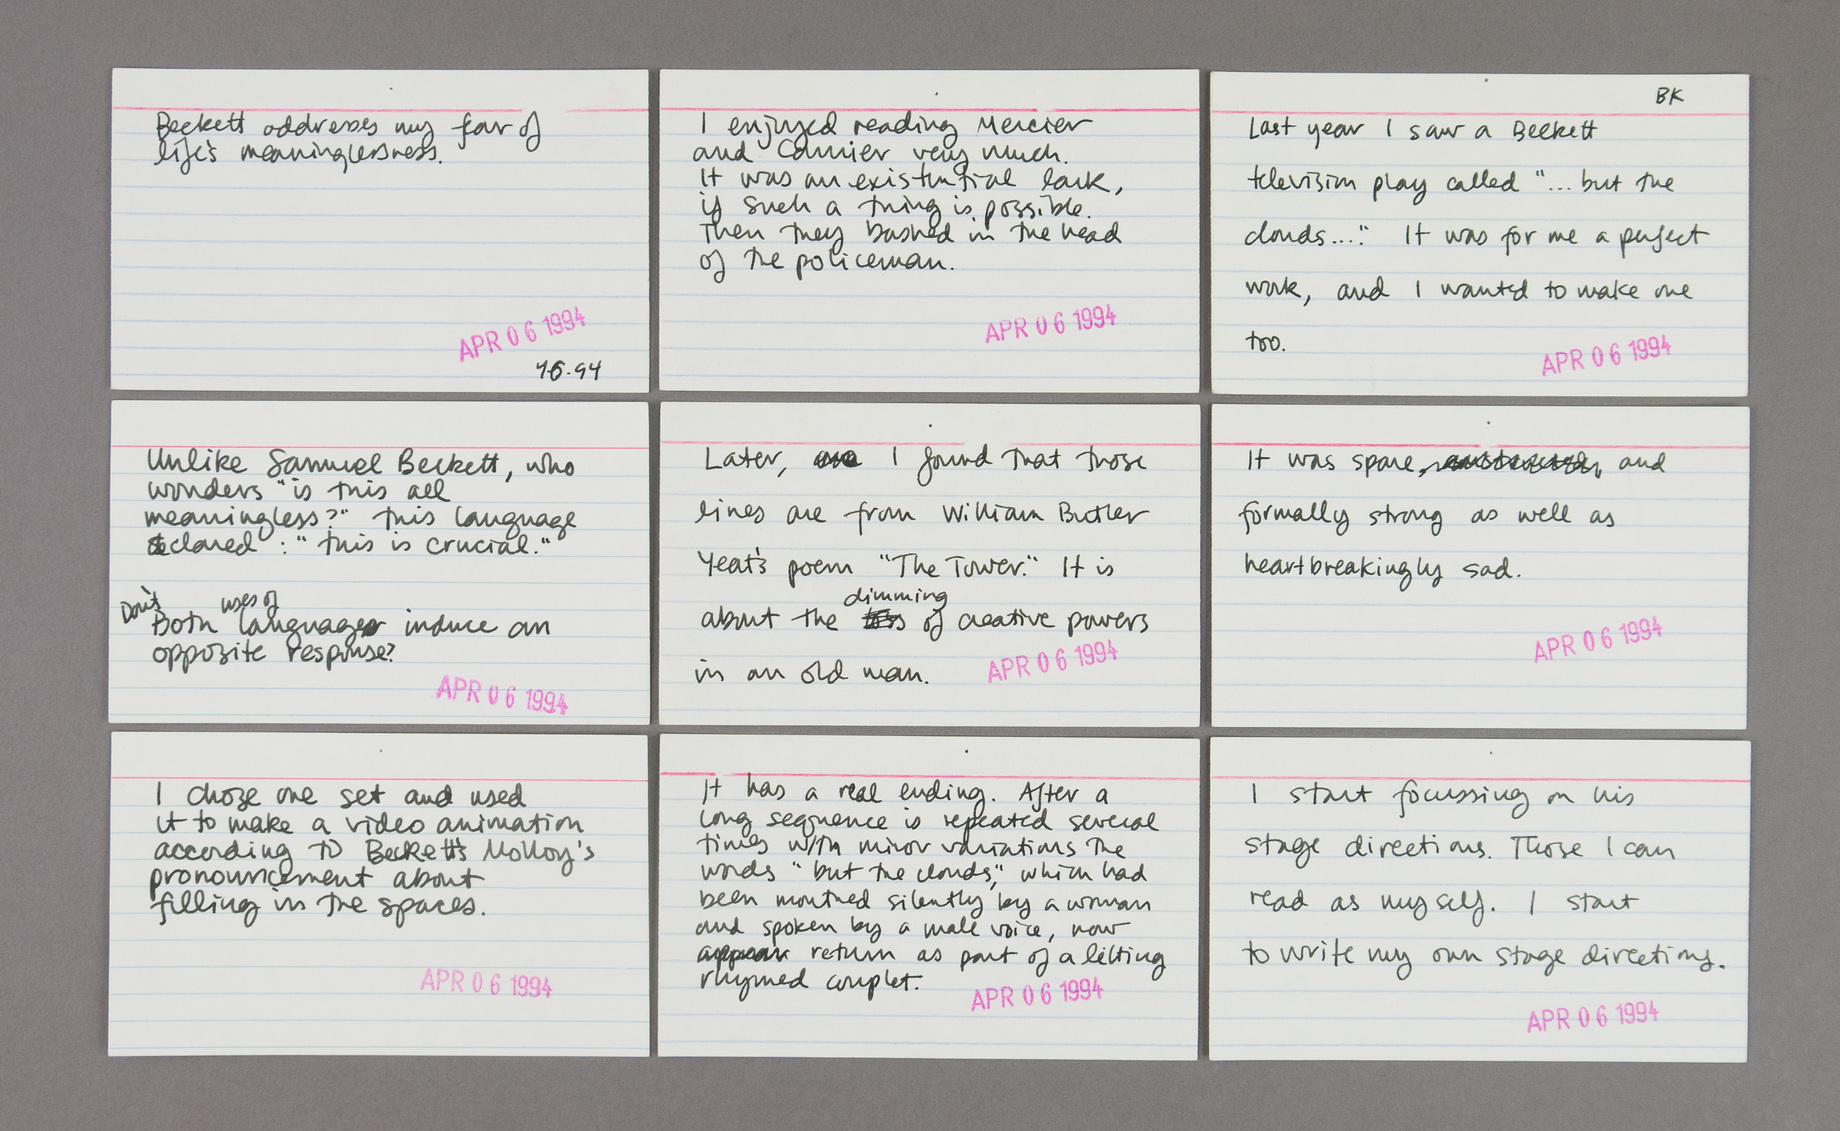 Beckett addresses my fear of
life's meaninglessness.
APR 06 1994
4.6.94
I enjoyed reading Mercier
and Camier very much.
It was an existential lark,
if such a thing is possible.
Then they bashed in the head
of the policeman.
APR 06 1994
BK
Last year I saw a Beckett
television play called "... but the
clouds...." It was for me a perfect
work, and I wanted to make one
too.
APR 06 1994
Unlike Samuel Beckett, who
wonders "is this all
meaningless?" this language
declared : "this is crucial."
Don't
uses of
Both language induce an
opposite response?
APR 06 1994
Later, I found that those
lines are from William Butler
Yeat's poem "The Tower." It is
dimming
about the of creative powers
in an old man.
APR 06 1994
It was spare, and
formally strong as well as
heartbreakingly sad.
APR 06 1994
I chose one set and used
it to make a video animation
according to Beckett's Molloy's
pronouncement about
filling in the spaces.
APR 06 1994
It has a real ending. After a
long sequence is repeated several
times with minor variations the
words "but the clouds," which had
been mouthed silently by a woman
and spoken by a male voice, now
appear return as part of a lilting
rhymed couplet.
APR 06 1994
I start focussing on his
stage directions. Those I can
read as myself. I start
to write my own stage directions.
APR 06 1994